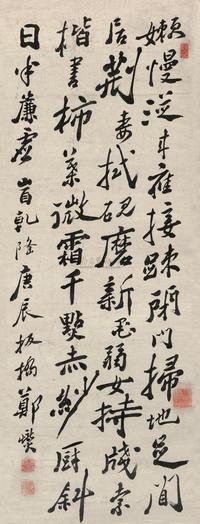 嬾慢從來應接疎閉門掃地足閒
居荆妻拭硯磨新墨弱女持牋索
楷書柿葉微霜千點赤紗廚斜
日半簾虛 乾隆庚辰板橋鄭燮